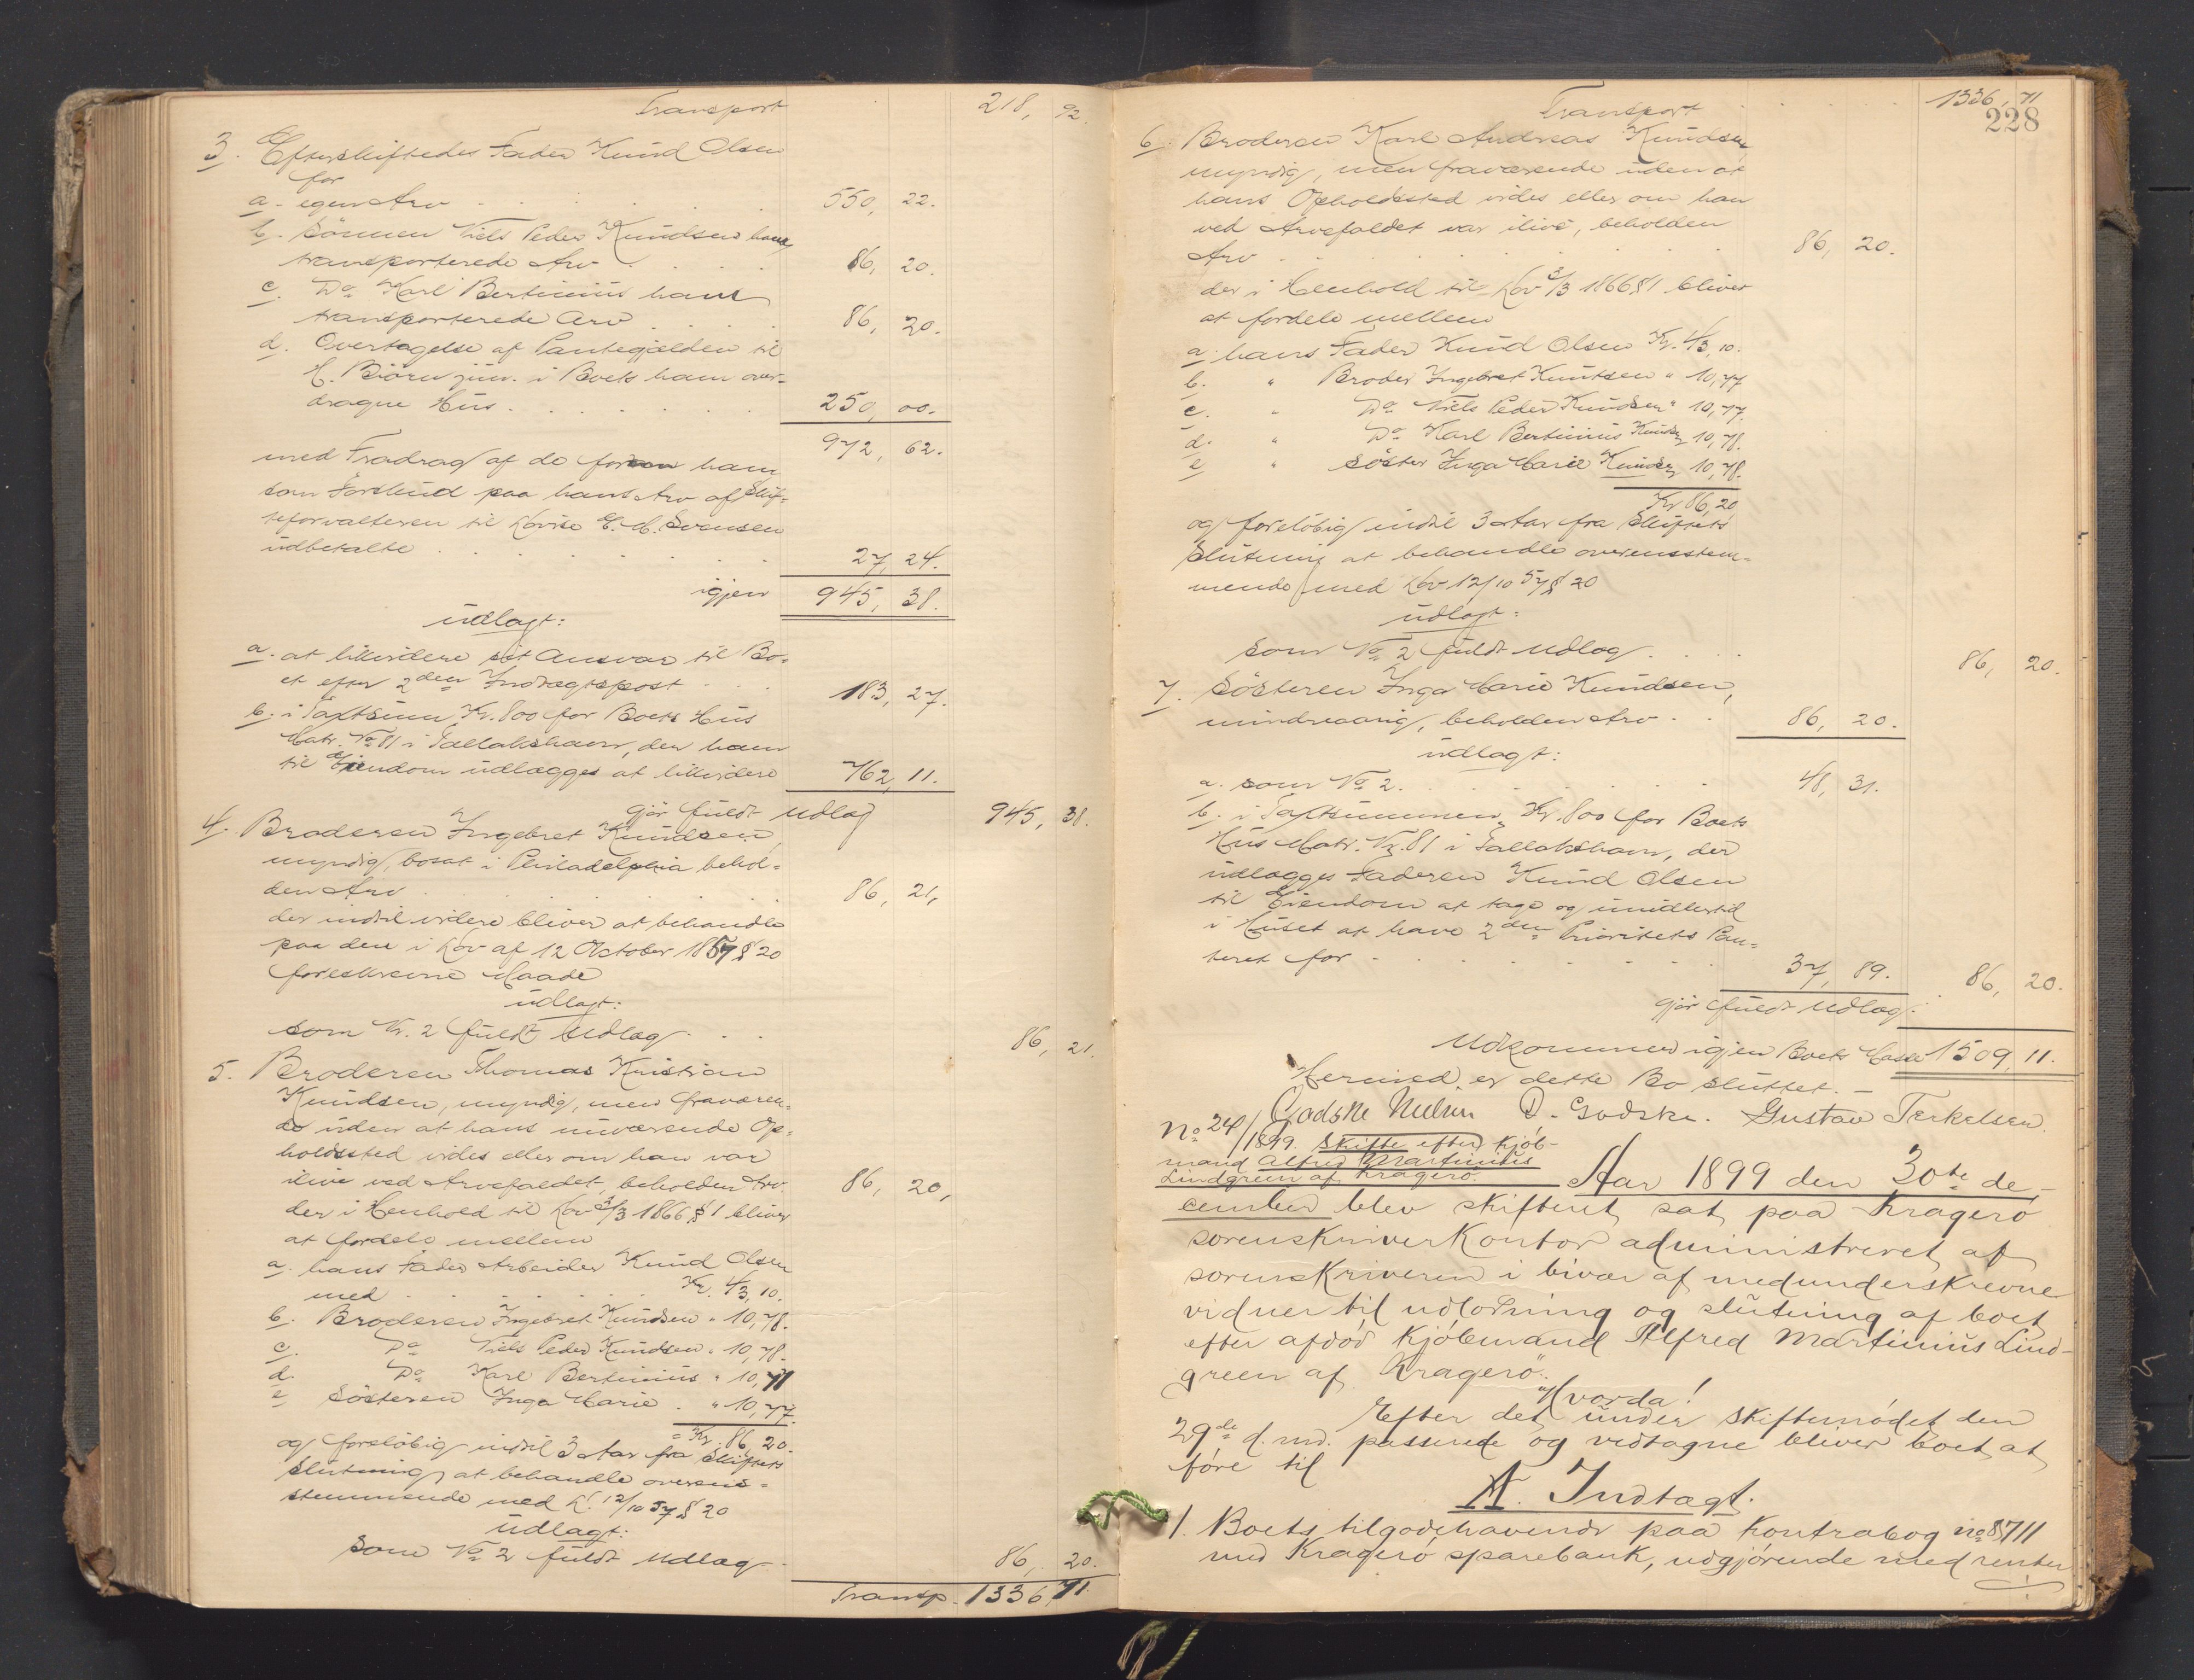 Transport 218, 92.
3. Efterskiftedes Fader Knud Olsen
for
a. egen Arv 550, 22.
b. Sönnen Niels Peder Knudsens ham
transporterede Arv 86, 20.
c. Do Karl Bertinius ham
transporterede Arv 86, 20.
d. Overtagelse af Pantegjælden til
H. Biörn jun. i Boets ham over-
dragne Hus 250, 00.
972, 62.
med Fradrag af de for ham
som Forskud paa hans Arv af Skif-
teforvalteren til Lovise E. M. Svensen
udbetalte 27, 24.
igjen 945, 38.
udlagt:
a. at likvidere sit Ansvar til Bo-
et efter 2den Indtægtspost 183, 27.
b. i Taxtsum Kr. 800 for Boets Hus
Matr. No 81 i Tallakshavn, der ham
til Eiendom udlægges at likvidere 762, 11.
gjör fuldt Udlag 945, 38.
4. Broderen Ingebret Knudsen,
myndig, bosat i Philadelphia behol-
den Arv 86, 21,
der indtil videre bliver at behandle
paa den i Lov af 12 October 1857 § 20
foreskrevne Maade
udlagt:
som Nr. 2 fuldt Udlæg 86, 21.
5. Broderen Thomas Kristian
Knudsen, myndig, men fraværen-
de uden at hans nuværende Op-
holdssted vides eller om han var
ilive ved Arvefaldet, beholden Arv 86, 20,
der i Henhold til Lov 3/3 1866 § 1 bliver
at fordele mellem
a. hans Fader Arbeider Knud Olsen
med Kr. 43, 10.
b. Broderen Ingebret Knudsen " 10,78.
c. Do Niels Peder Knudsen " 10,78.
d. Do Karl Bertinius " 10,77
e Sösteren Inga Marie " 10,77.
= Kr. 86, 20.
og foreløbig indtil 3 Aar fra Skiftets
Slutning at behandle overens-
stemmende med L. 12/10 57 § 20
udlagt:
som No 2 fuldt Udlæg 86, 20.
Transp. 1336,71.
Transport 1336, 71
228
6. Broderen Karl Andreas Knudsen,
myndig, men fraværende uden at
hans Opholdssted vides eller om han
ved Arvefaldet var ilive, beholden
Arv 86, 20.
der i Henhold til Lov 3/3 1866 § 1 bliver
at fordele mellem
a. hans Fader Knud Olsen Kr. 43, 10.
b. " Broder Ingebret Knutsen " 10,77
c. " Do Niels Peder Knudsen " 10,77.
d. " Do Karl Bertinius Knudsen 10,78.
e " Söster Inga Marie Knudsen 10,78.
Kr 86,20
og foreløbig indtil 3 Aar fra Skiftets
Slutning at behandle overensstem-
mende med Lov 12/10 57 § 20
udlagt:
som No 2 fuldt Udlæg 86, 20.
7. Sösteren Inga Marie Knudsen,
mindreaarig, beholden Arv 86, 20.
udlagt:
a. som No 2. 48, 31.
b. i Taxtsummen Kr. 800 for Boets
Hus Matr. Nr. 81 i Tallakshavn, der
udlægges Faderen Knud Olsen
til Eiendom at tage og imidlertid
i Huset at have 2den Prioritets Pan-
teret for 37, 89. 86, 20.
gjör fuldt Udlæg
Udkommer igjen Boets Masse 1509, 11.
Hermed er dette Bo sluttet. —
Godske Nielsen D. Godske. Gustav Terkelsen.
No 24/1899. Skifte efter kjöb-
mand Alfred Martinius
Lindgreen af Kragerö.
Aar 1899 den 30te de-
cember blev skifteret sat paa Kragerö
sorenskriverkontor administreret af
sorenskriveren i bivær af medunderskrevne
vidner til udlodning og slutning af boet
efter afdöd kjöbmand Alfred Martinius Lind-
green af Kragerö.
Hvorda!
Efter det under skiftemödet den
29de d. md. passerede og vedtagne bliver boet at
före til
A. Indtægt.
1. Boets tilgodehavende paa kontrabog no 8711
med Kragerö sparebank, udgjörende med renter